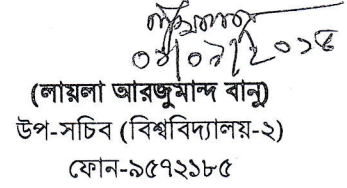 ০৪/০৯/২০১৪
(লায়লা আরজুমান্দ বানু)
উপ-সচিব (বিশ্ববিদ্যালয়-২)
ফোন-৯৫৭২১৮৫